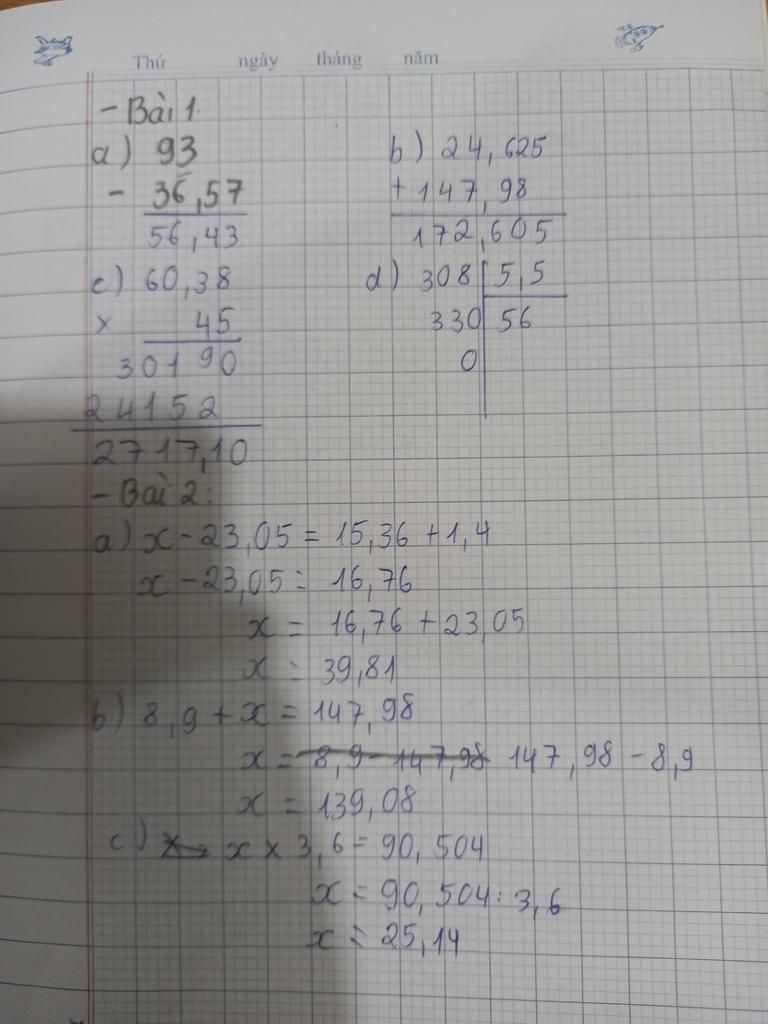 Thứ ngày tháng năm
- Bài 1:
a) 93 b) 24,625
- 36,57 + 147,98
56,43 172,605
c) 60,38 d) 308 5,5
x 45 330 56
30190 0
24152
2717,10
- Bài 2:
a) x - 23,05 = 15,36 + 1,4
x - 23,05 = 16,76
x = 16,76 + 23,05
x = 39,81
b) 8,9 + x = 147,98
x = 8,9 - 147,98 147,98 - 8,9
x = 139,08
c) x x 3,6 = 90,504
x = 90,504 : 3,6
x = 25,14